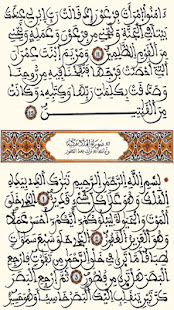 ءَامَنُوا امْرَأَتَ فِرْعَوْنَ إِذْ قَالَتْ رَبِّ ابْنِ لِي عِندَكَ
بَيْتًا فِي الْجَنَّةِ وَنَجِّنِي مِن فِرْعَوْنَ وَعَمَلِهِ وَنَجِّنِي
مِنَ الْقَوْمِ الظَّٰلِمِينَ وَمَرْيَمَ ابْنَتَ عِمْرَٰنَ
الَّتِي أَحْصَنَتْ فَرْجَهَا فَنَفَخْنَا فِيهِ مِن رُّوحِنَا
وَصَدَّقَتْ بِكَلِمَٰتِ رَبِّهَا وَكِتَٰبِهِ وَكَانَتْ
مِنَ الْقَٰنِتِينَ
سورة الملك مكية
بِسْمِ اللَّهِ الرَّحْمَٰنِ الرَّحِيمِ تَبَٰرَكَ الَّذِي بِيَدِهِ
الْمُلْكُ وَهُوَ عَلَىٰ كُلِّ شَيْءٍ قَدِيرٌ الَّذِي خَلَقَ
الْمَوْتَ وَالْحَيَوٰةَ لِيَبْلُوَكُمْ أَيُّكُمْ أَحْسَنُ عَمَلًا
وَهُوَ الْعَزِيزُ الْغَفُورُ الَّذِي خَلَقَ سَبْعَ سَمَٰوَٰتٍ
طِبَاقًا مَّا تَرَىٰ فِي خَلْقِ الرَّحْمَٰنِ مِن تَفَٰوُتٍ فَارْجِعِ
الْبَصَرَ هَلْ تَرَىٰ مِن فُطُورٍ ثُمَّ ارْجِعِ الْبَصَرَ
كَرَّتَيْنِ يَنقَلِبْ إِلَيْكَ الْبَصَرُ خَاسِئًا وَهُوَ حَسِيرٌ